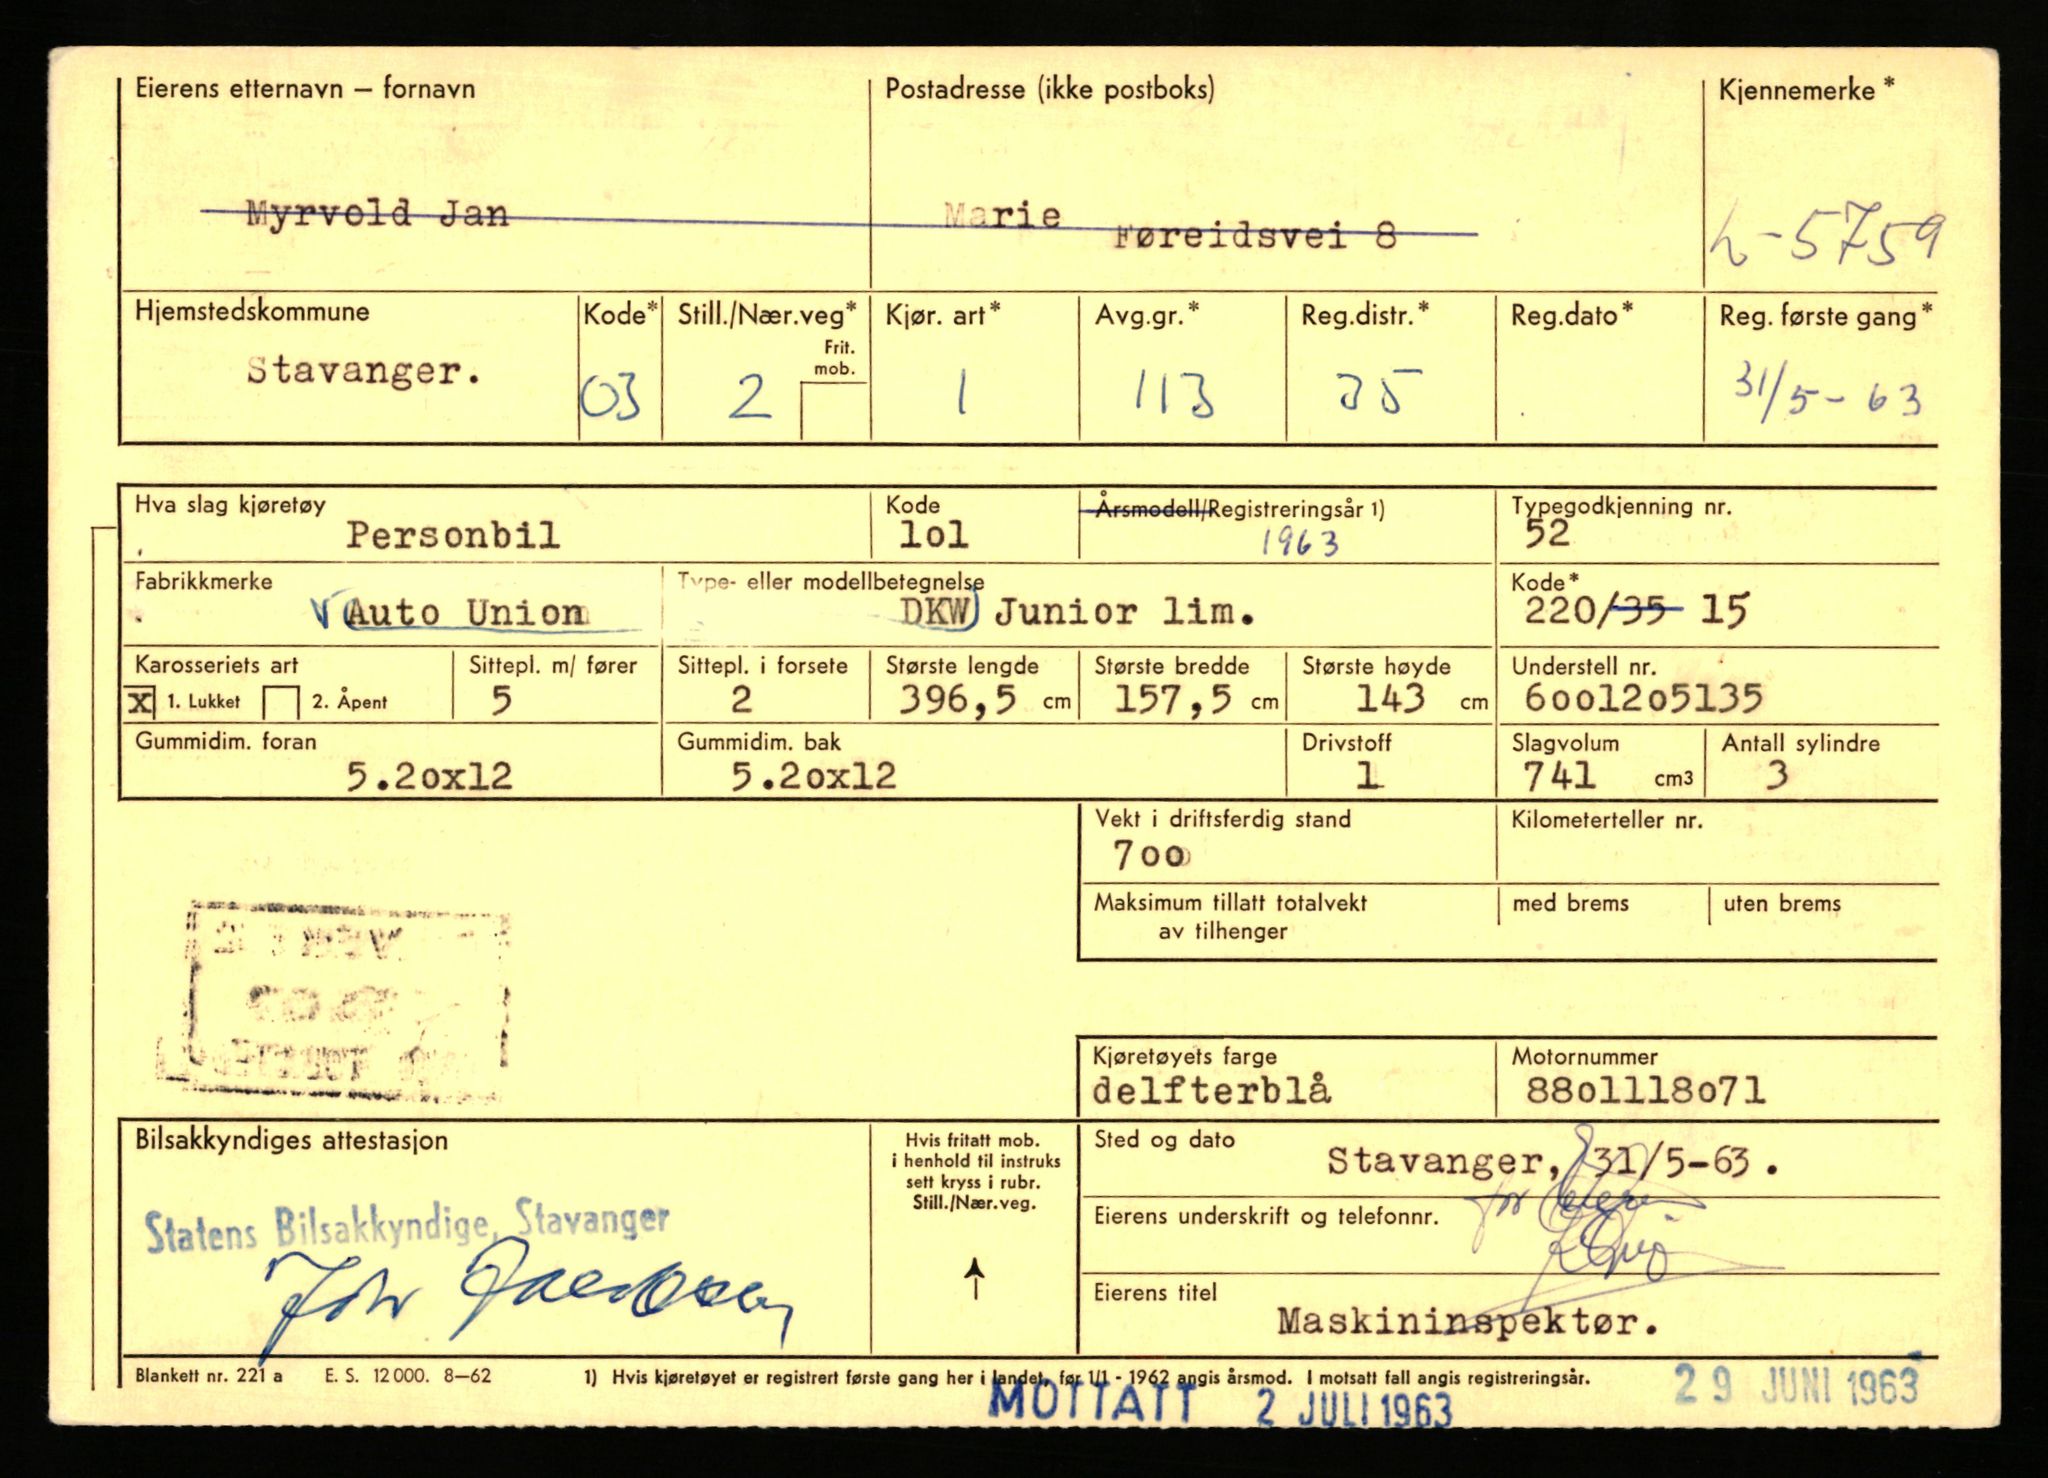 Eierens etternavn – fornavn
Postadresse (ikke postboks)
Kjennemerke *
Myrvold Jan
Marie Føreidsvei 8
L-5759
Hjemstedskommune
Kode*
Still./Nær.veg*
Frit. mob.
Kjør. art*
Avg.gr.*
Reg.distr.*
Reg.dato*
Reg. første gang*
Stavanger.
03
2
1
113
35
31/5-63
Hva slag kjøretøy
Kode
Årsmodell/Registreringsår 1)
Typegodkjenning nr.
Personbil
lol
1963
52
Fabrikkmerke
Type- eller modellbetegnelse
Kode*
Auto Union
DKW Junior lim.
220/35 15
Karosseriets art
Sittepl. m/ fører
Sittepl. i forsete
Største lengde
Største bredde
Største høyde
Understell nr.
X 1. Lukket
2. Åpent
5
2
396,5 cm
157,5 cm
143 cm
6001205135
Gummidim. foran
Gummidim. bak
Drivstoff
Slagvolum
Antall sylindre
5.20x12
5.20x12
1
741 cm3
3
Vekt i driftsferdig stand
Kilometerteller nr.
700
Maksimum tillatt totalvekt
av tilhenger
med brems
uten brems
Kjøretøyets farge
Motornummer
delfterblå
8801118071
Bilsakkyndiges attestasjon
Hvis fritatt mob.
i henhold til instruks
sett kryss i rubr.
Still./Nær.veg.
Sted og dato
Stavanger, 31/5-63.
Statens Bilsakkyndige, Stavanger
Eierens underskrift og telefonnr.
for
Eierens titel
Maskininspektør.
Blankett nr. 221 a
E. S. 12 000. 8–62
1) Hvis kjøretøyet er registrert første gang her i landet, før 1/1 - 1962 angis årsmod. I motsatt fall angis registreringsår.
MOTTATT 2 JULI 1963
29 JUNI 1963